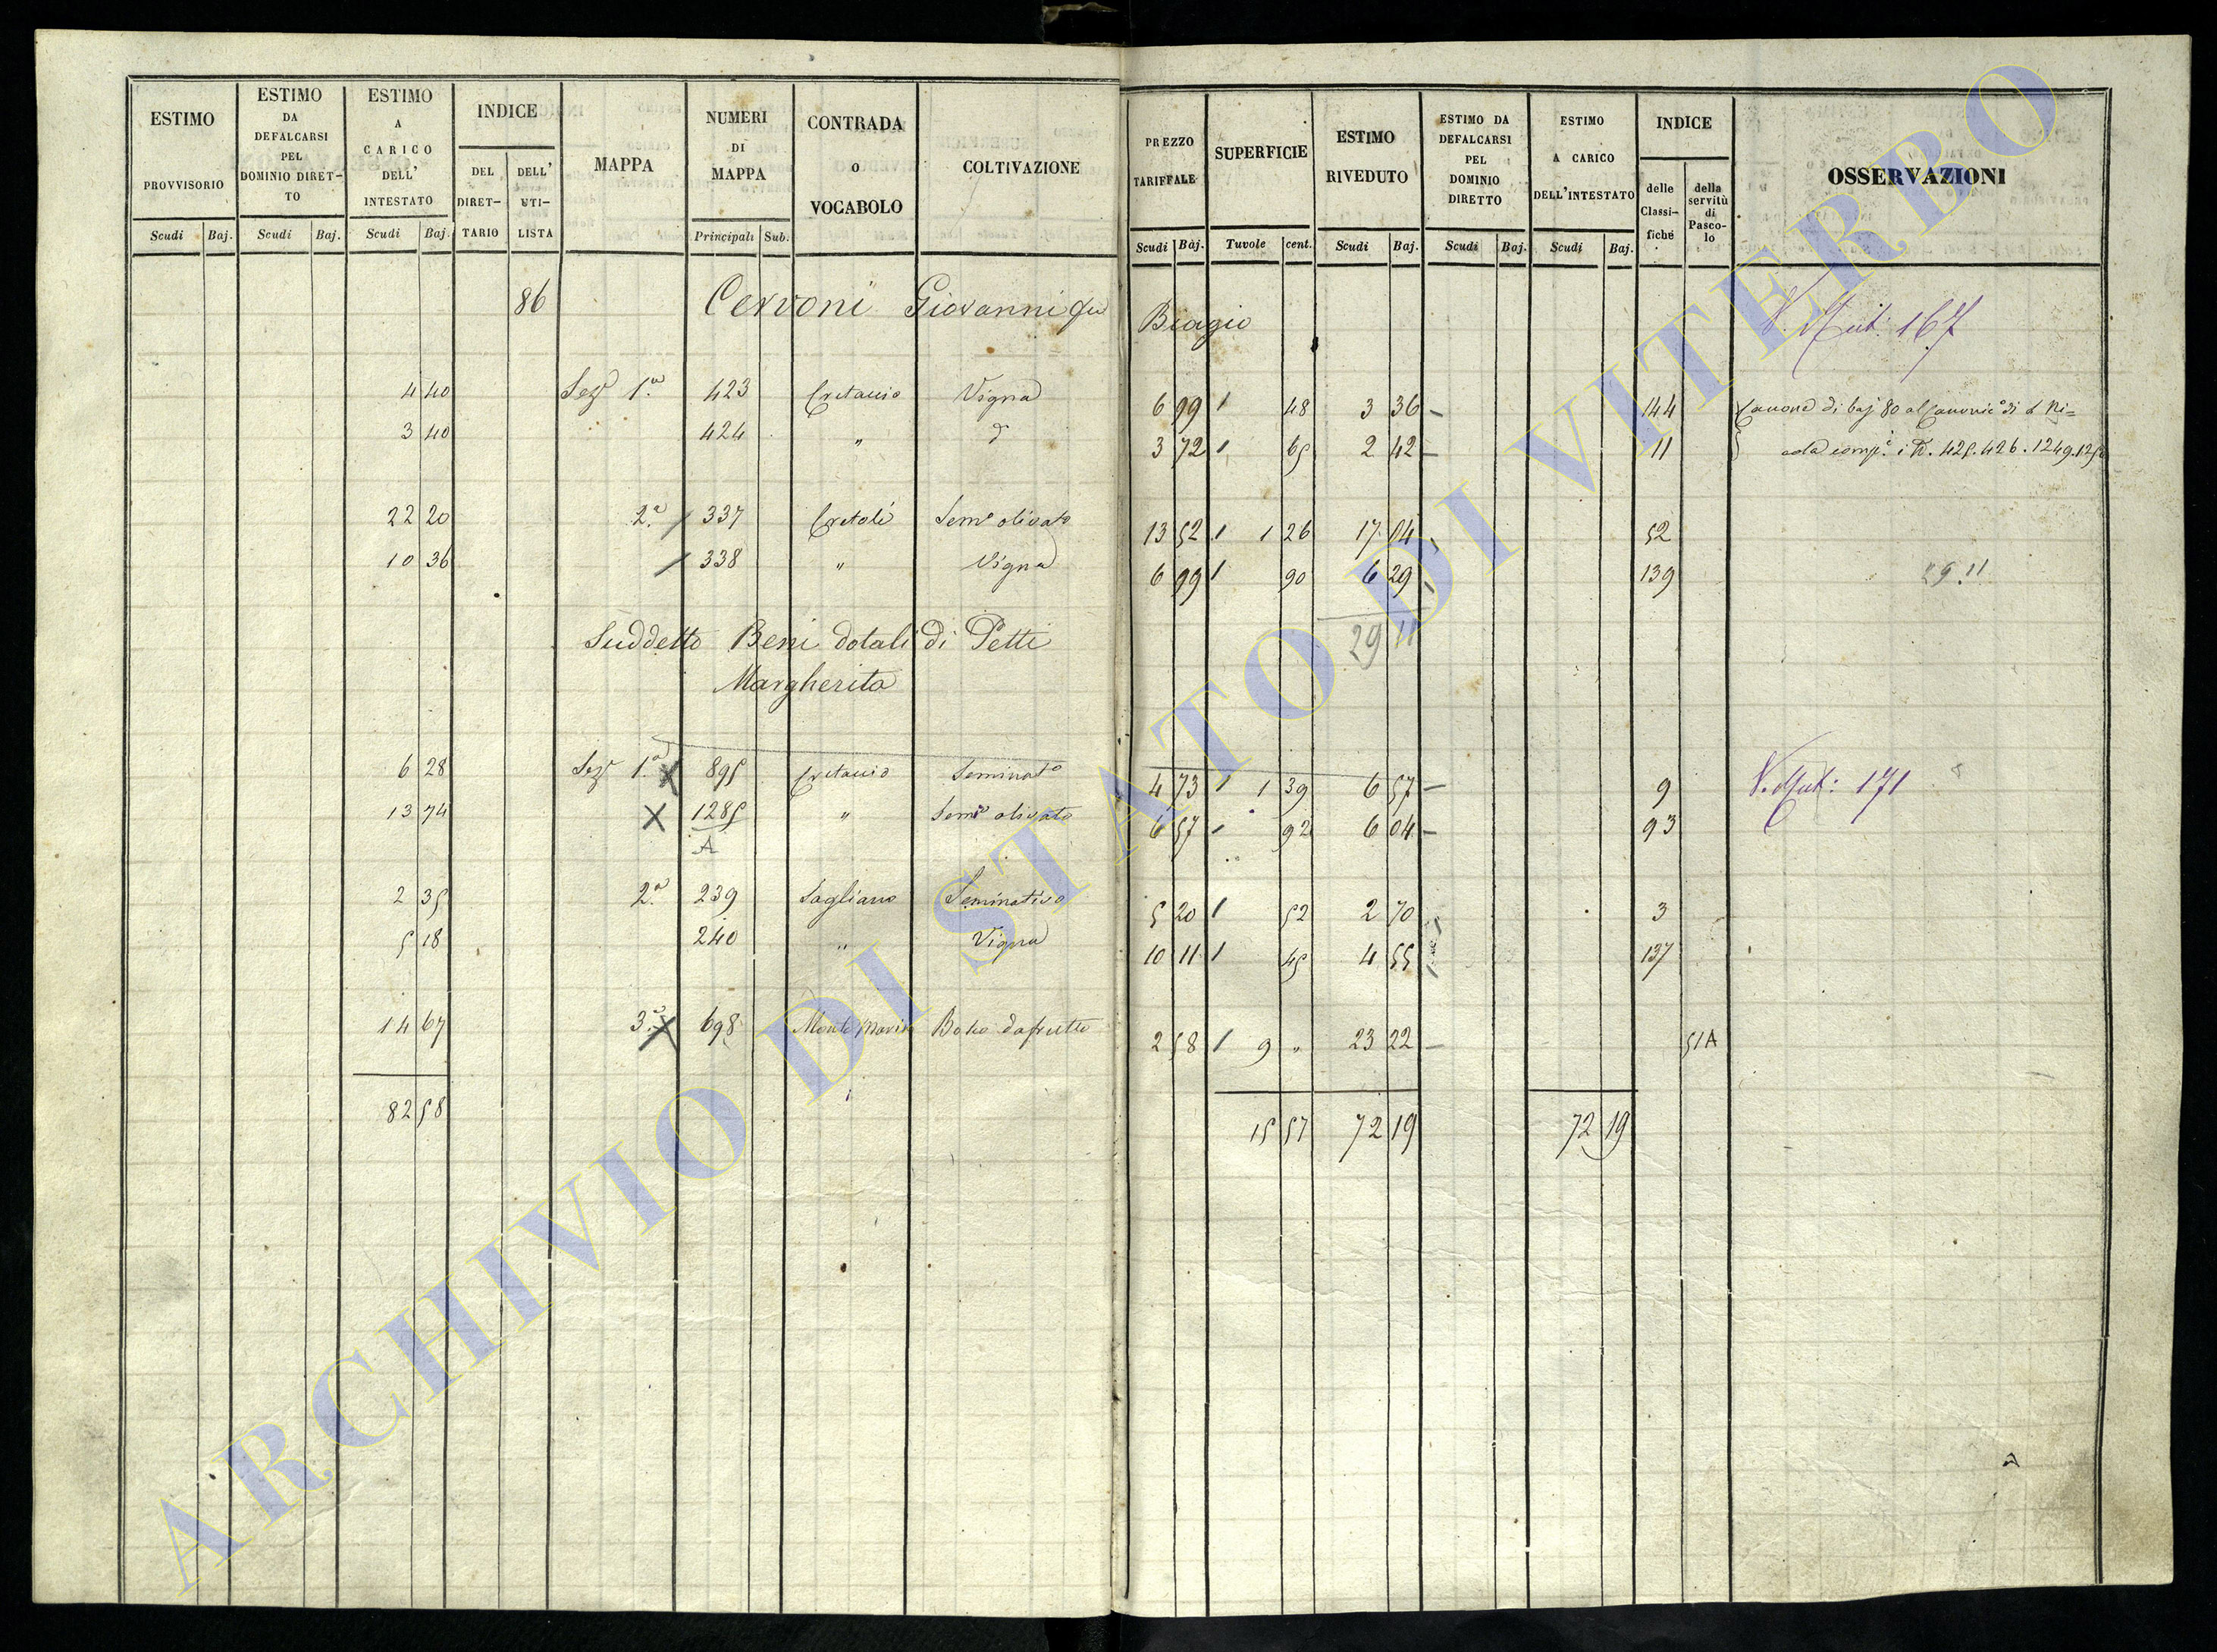 ESTIMO PROVVISORIO
ESTIMO DA DEFALCARSI PEL DOMINIO DIRET-TO
ESTIMO A CARICO DELL' INTESTATO
INDICE
DEL DIRET-TARIO
DELL' UTI-LISTA
MAPPA
NUMERI DI MAPPA
CONTRADA O VOCABOLO
COLTIVAZIONE
PREZZO TARIFFALE
SUPERFICIE
ESTIMO RIVEDUTO
ESTIMO DA DEFALCARSI PEL DOMINIO DIRETTO
ESTIMO A CARICO DELL'INTESTATO
INDICE
delle Classi-fiche
della servitù di Pasco-lo
OSSERVAZIONI
Scudi Baj. Scudi Baj. Scudi Baj. Principali Sub. Scudi Baj. Tavole cent. Scudi Baj. Scudi Baj. Scudi Baj.
86 Cervoni Giovanni fu Biagio V. Mut: 167
4 40 Sez 1.a 423 Cretaccio Vigna 6 99 1 48 3 36 144 Canone di baj 80 al Canonic.o di S Ni=
3 40 424 " d 3 72 1 65 2 42 11 cola comp. i N. 425.426.1249.125
22 20 2.a 337 Cretoli Sem.o olivato 13 52 1 1 26 17 04 52
10 36 338 " Vigna 6 99 1 90 6 29 139 29.11
29 11
Suddetto Beni dotali di Petti
Margherita
6 28 Sez 1.a X 895 Cretaccio Seminato 4 73 1 1 39 6 57 9 V. Mut: 171
13 74 X 1285 " Sem.o olivato 6 57 1 92 6 04 93
A
2 35 2.a 239 Sagliano Seminativo 5 20 1 52 2 70 3
5 18 240 " Vigna 10 11 1 45 4 55 137
14 67 3.a X 698 Monte Bosco da frutto 2 58 1 9 " 23 22 51A
82 58 15 57 72 19 72 19
ARCHIVIO DI STATO DI VITERBO